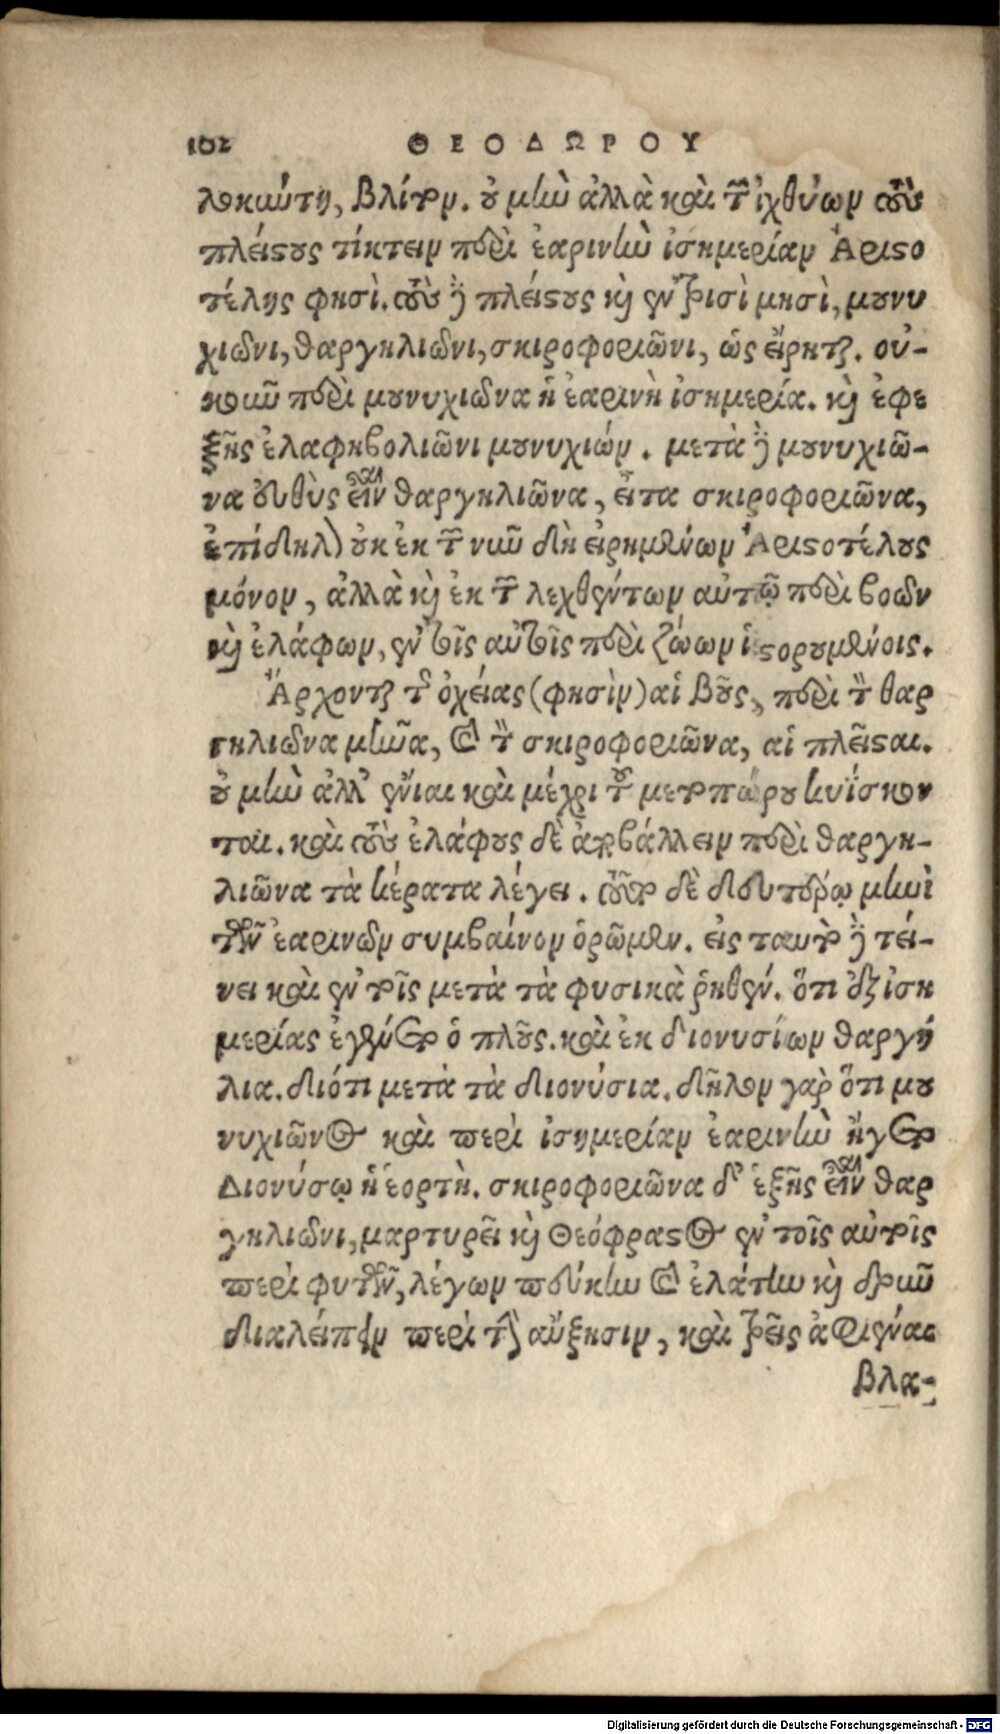 102 ΘΕΟΔΩΡΟΥ
λοκιώτη, βλίτον. οὐ μὴν ἀλλὰ καὶ τῶν ἰχθύων τοὺς
πλείστους τίκτειν περὶ ἐαρινὴν ἰσημερίαν Ἀριστο
τέλης φησὶ. τοὺς δὲ πλείστους καὶ ἐν τρισὶ μησὶ, μουνυ
χιῶνι, θαργηλιῶνι, σκιροφοριῶνι, ὡς εἴρηται. οὐ-
κοῦν περὶ μουνυχιῶνα ἡ ἐαρινὴ ἰσημερία. καὶ ἐφε
ξῆς ἐλαφηβολιῶνι μουνυχιών. μετὰ δὲ μουνυχιῶ-
να εὐθὺς εἶναι θαργηλιῶνα, εἶτα σκιροφοριῶνα,
ἐπίδηλον οὐκ ἐκ τῶν νῦν δὴ εἰρημένων Ἀριστοτέλους
μόνον, ἀλλὰ καὶ ἐκ τῶν λεχθέντων αὐτῷ περὶ βοῶν
καὶ ἐλάφων, ἐν τοῖς αὐτοῖς περὶ ζώων ἱστορουμένοις.
Ἄρχονται τῆς ὀχείας (φησὶν) αἱ βοῦς, περὶ τὸν θαρ
γηλιῶνα μῆνα, καὶ τὸν σκιροφοριῶνα, αἱ πλεῖσται.
οὐ μὴν ἀλλ' ἔνιαι καὶ μέχρι τοῦ μετοπώρου κυΐσκον
ται. καὶ τοὺς ἐλάφους δὲ ἀποβάλλειν περὶ θαργη-
λιῶνα τὰ κέρατα λέγει. τοῦτο δὲ δευτέρῳ μηνὶ
τῶν ἐαρινῶν συμβαίνον ὁρῶμεν. εἰς ταυτὸ δὲ τεί-
νει καὶ ἐν τοῖς μετὰ τὰ φυσικὰ ῥηθέν. ὅτι ἐξ ἰση
μερίας ἐγένετο ὁ πλοῦς. καὶ ἐκ διονυσίων θαργή
λια. διότι μετὰ τὰ διονύσια. δῆλον γὰρ ὅτι μου
νυχιῶνος καὶ περὶ ἰσημερίαν ἐαρινὴν ἤγετο
Διονύσῳ ἡ ἑορτὴ. σκιροφοριῶνα δ' ἑξῆς εἶναι θαρ
γηλιῶνι, μαρτυρεῖ καὶ Θεόφραστος ἐν τοῖς αὐτοῖς
περὶ φυτῶν, λέγων πεύκην καὶ ἐλάτην καὶ δρῦν
διαλείπειν περὶ τὴν αὔξησιν, καὶ τρεῖς ἀφιέναι
βλα-